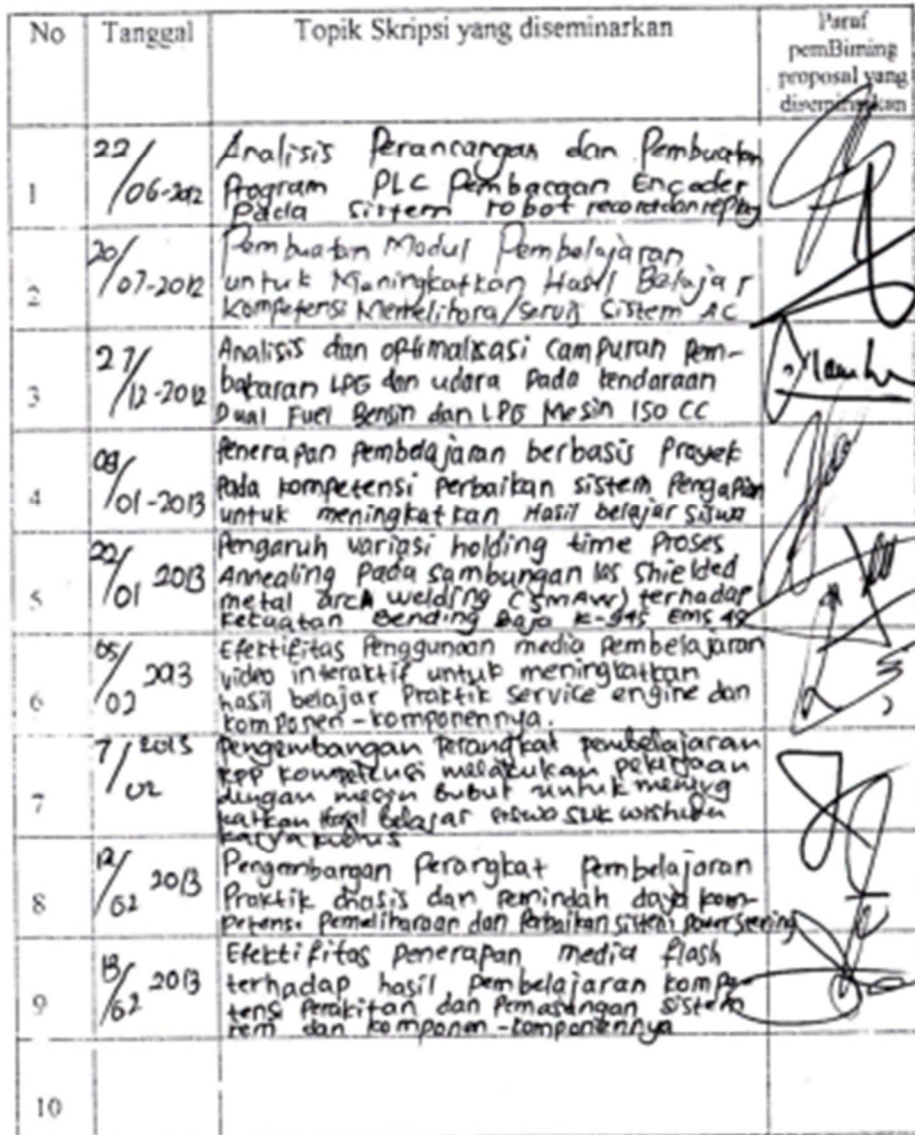 No Tanggal Topik Skripsi yang diseminarkan Paraf
pemBiming
proposal yang
diseminarkan
1 22/06-2012 Analisis Perancangan dan Pembuatan
Program PLC Pembacaan Encoder
Pada sistem robot record dan replay
2 20/07-2012 Pembuatan Modul Pembelajaran
untuk Meningkatkan Hasil Belajar
Kompetensi Memelihara/Servis Sistem AC
3 27/12-2012 Analisis dan optimalisasi campuran Pem-
bakaran LPG dan udara Pada kendaraan
Dual Fuel Bensin dan LPG Mesin 150 CC
4 09/01-2013 Penerapan Pembelajaran berbasis Proyek
Pada kompetensi perbaikan sistem Pengapian
untuk meningkatkan Hasil belajar Siswa
5 22/01 2013 Pengaruh variasi holding time Proses
Annealing Pada Sambungan las Shielded
metal arch welding (SMAW) terhadap
Kekuatan Bending Baja K-945 EMS 45
6 05/02 2013 Efektifitas Penggunaan media pembelajaran
video interaktif untuk meningkatkan
hasil belajar Praktik service engine dan
komponen-komponennya.
7 7/02 2013 Pengembangan Perangkat pembelajaran
KPP kompetensi melakukan pekerjaan
dengan mesin bubut untuk mening
katkan Hasil Belajar siswa SMK wishudha
karya kudus
8 12/02 2013 Pengembangan Perangkat Pembelajaran
Praktik chasis dan pemindah daya kom-
petensi Pemeliharaan dan Perbaikan sistem power steering
9 13/02 2013 Efektifitas penerapan media flash
terhadap hasil pembelajaran kompe-
tensi Perakitan dan Pemasangan sistem
rem dan komponen-komponennya
10